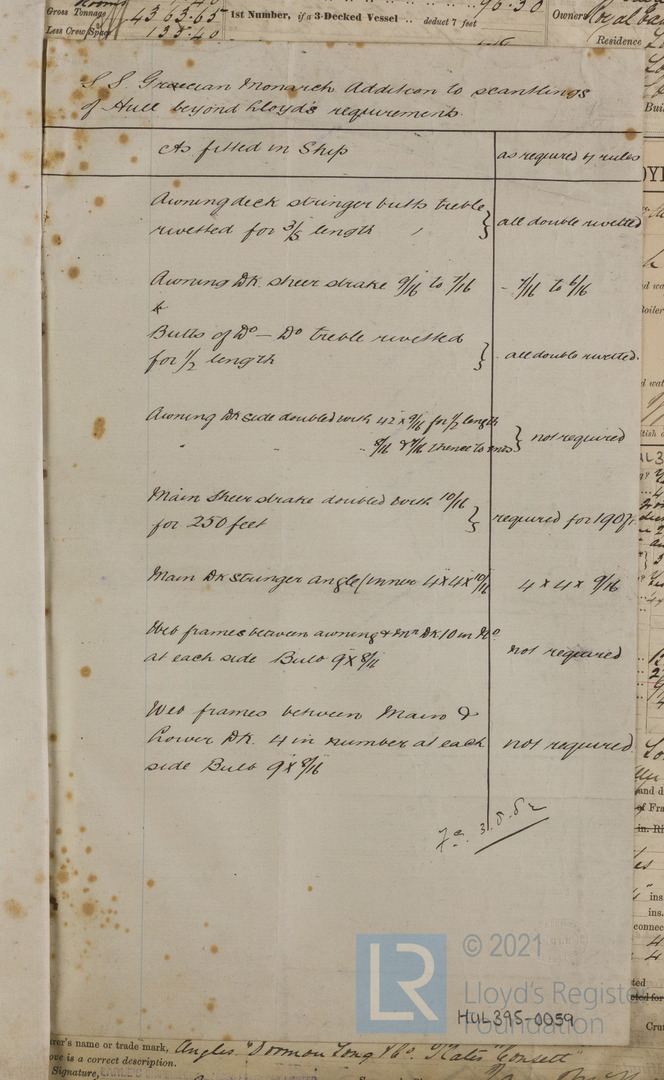 Gross Tonnage 4363.65
Less Crew Space 133.40
1st Number, if a 3-Decked Vessel .. deduct 7 feet
96.30
Owners Royal
Residence
S S. Grecian Monarch Addition to scantlings
of Hull beyond Lloyds requirements.
As fitted in Ship
as required by rules
Awning deck stringer butts treble
rivetted for 3/5 length
all double rivetted
Awning Dk. sheer strake 9/16 to 7/16
- 7/16 to 6/16
&
Butts of Do — Do treble rivetted
for 1/2 length
all double rivetted.
Awning Dk side doubled with 42 x 9/16 for 1/2 length
8/16 & 7/16 thence to ends
not required
Main Sheer strake doubled with 10/16
for 250 feet
required for 190 ft
Main Dk stringer angle (inner 4 x 4 x 10/16
4 x 4 x 9/16
Web frames between awning & Mn Dk 10 in No
at each side Bulb 9 x 8/16
not required
Web frames between Main &
Lower Dk. 4 in number at each
side Bulb 9 x 8/16
not required
© 2021
LR
Lloyd's Register
Foundation
HUL395-0059
name or trade mark,
is a correct description.
Angles "Dorman Long & Co. Plates "Consett"
Signature,